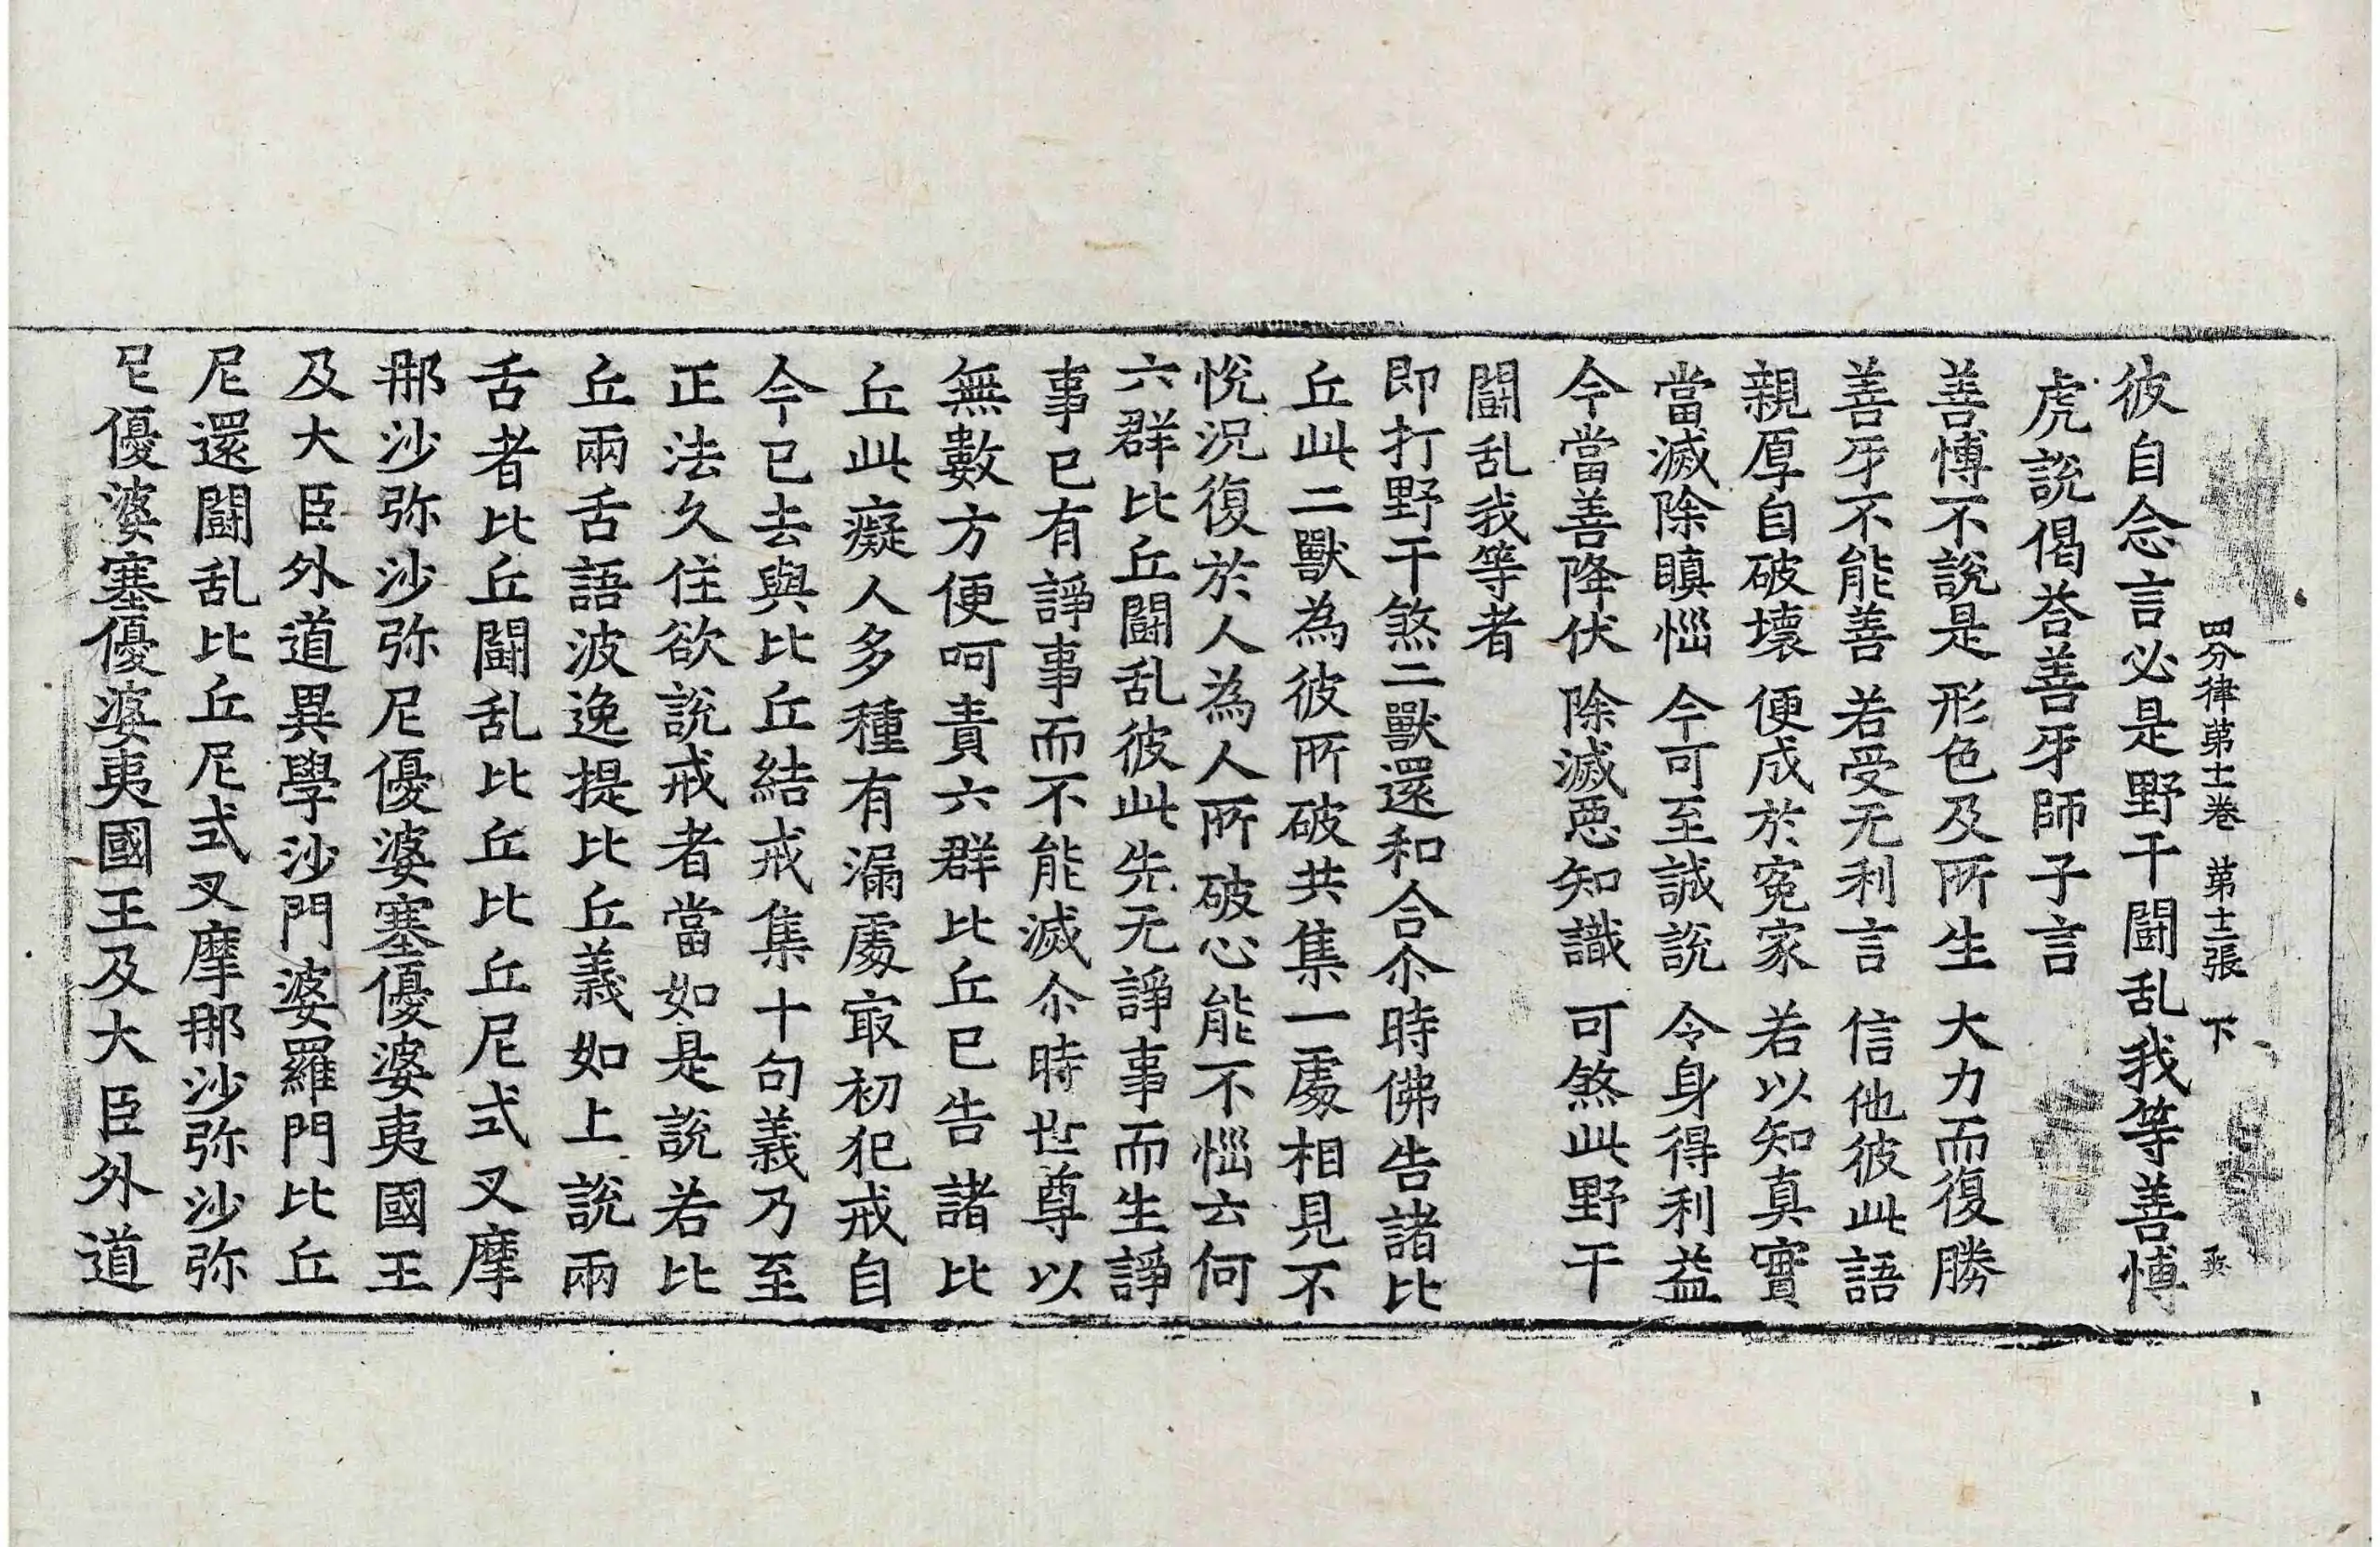 四分律第十一卷 第十二張 下
彼自念言必是野干鬪乱我等善愽
虎說偈荅善牙師子言
善愽不說是 形色及所生 大力而復勝
善牙不能善 若受无利言 信他彼此語
親厚自破壞 便成於寃家 若以知真實
當滅除瞋惱 今可至誠說 令身得利益
今當善降伏 除滅惡知識 可煞此野干
鬪乱我等者
即打野干煞二獸還和合尒時佛告諸比
丘此二獸為彼所破共集一處相見不
悅況復於人為人所破心能不惱云何
六群比丘鬪乱彼此先无諍事而生諍
事已有諍事而不能滅尒時世尊以
無數方便呵責六群比丘已告諸比
丘此癡人多種有漏處㝡初犯戒自
今已去與比丘結戒集十句義乃至
正法久住欲說戒者當如是說若比
丘兩舌語波逸提比丘義如上說兩
舌者比丘鬪乱比丘比丘尼式叉摩
那沙弥沙弥尼優婆塞優婆夷國王
及大臣外道異學沙門婆羅門比丘
尼還鬪乱比丘尼式叉摩那沙弥沙弥
尼優婆塞優婆夷國王及大臣外道